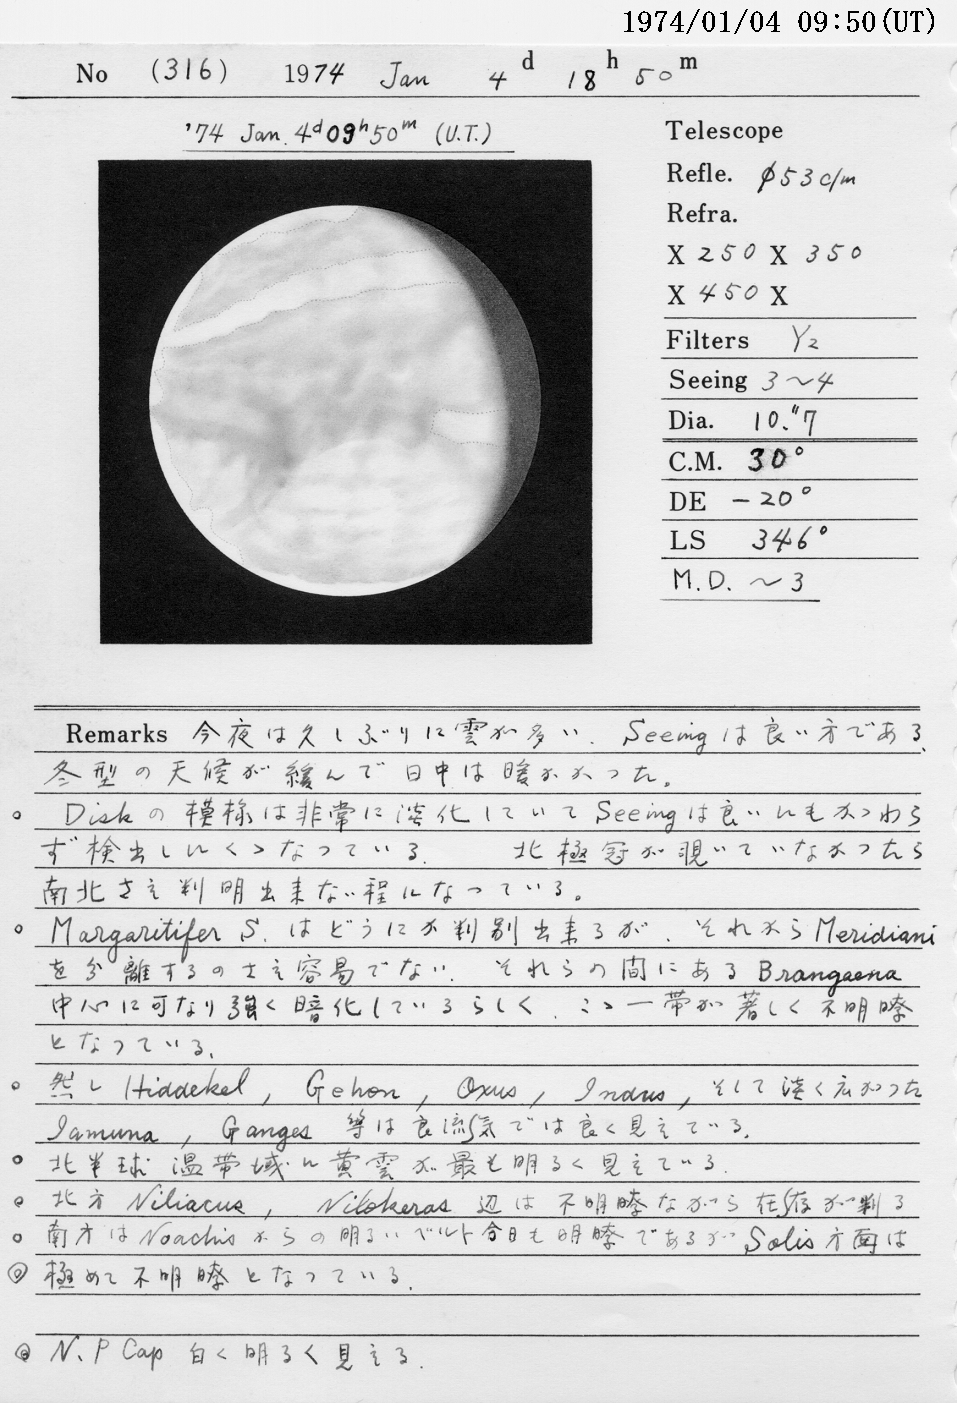 1974/01/04 09:50(UT)
No (316) 1974 Jan 4d 18h 50m
'74 Jan. 4d 09h 50m (U.T.)
Telescope
Refle. φ53c/m
Refra.
X 250 X 350
X 450 X
Filters Y2
Seeing 3~4
Dia. 10."7
C.M. 30°
DE -20°
LS 346°
M.D. ~3
Remarks 今夜は久しぶりに雲が多い. Seeingは良い方である.
冬型の天候が緩んで日中は暖かかった。
○ Diskの模様は非常に淡化していてSeeingは良いにもかかわら
ず検出しにくくなっている. 北極冠が覗いていなかったら
南北さえ判明出来ない程になっている。
○ Margaritifer S. はどうにか判別出来るが、それからMeridiani
を分離するのさえ容易でない. それらの間にあるBrangaena
中心に可なり強く暗化しているらしく、ここ一帯が著しく不明瞭
となっている.
○ 然し Hiddekel, Gehon, Oxus, Indus, そして淡く広がった
Jamuna, Ganges 等は良流気では良く見えている.
○ 北半球温帯域に黄雲が最も明るく見えている.
○ 北方 Niliacus, Nilokeras 辺は不明瞭ながら在存が判る
○ 南方はNoachisからの明るいベルト今日も明瞭であるがSolis方面は
◎ 極めて不明瞭となっている.
◎ N.P Cap 白く明るく見える.